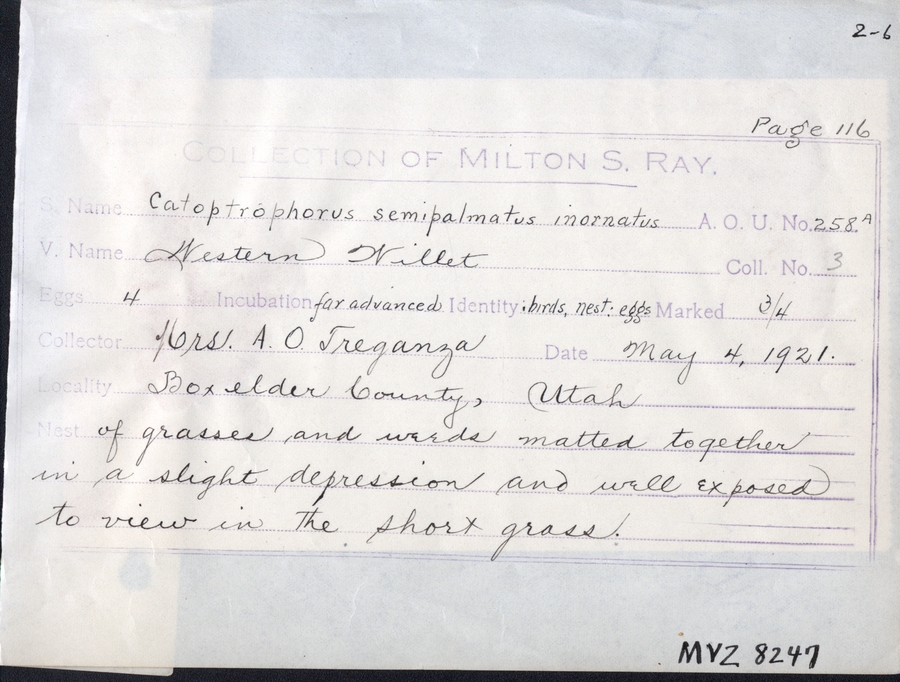 2-6
Page 116
COLLECTION OF MILTON S. RAY.
S. Name Catoptrophorus semipalmatus inornatus A. O. U. No. 258.A
V. Name Western Willet Coll. No. 3
Eggs 4 Incubation far advanced Identity birds, nest, eggs Marked 3/4
Collector Mrs. A. O. Treganza Date May 4, 1921.
Locality Boxelder County, Utah
Nest of grasses and weeds matted together
in a slight depression and well exposed
to view in the short grass.
MVZ 8247